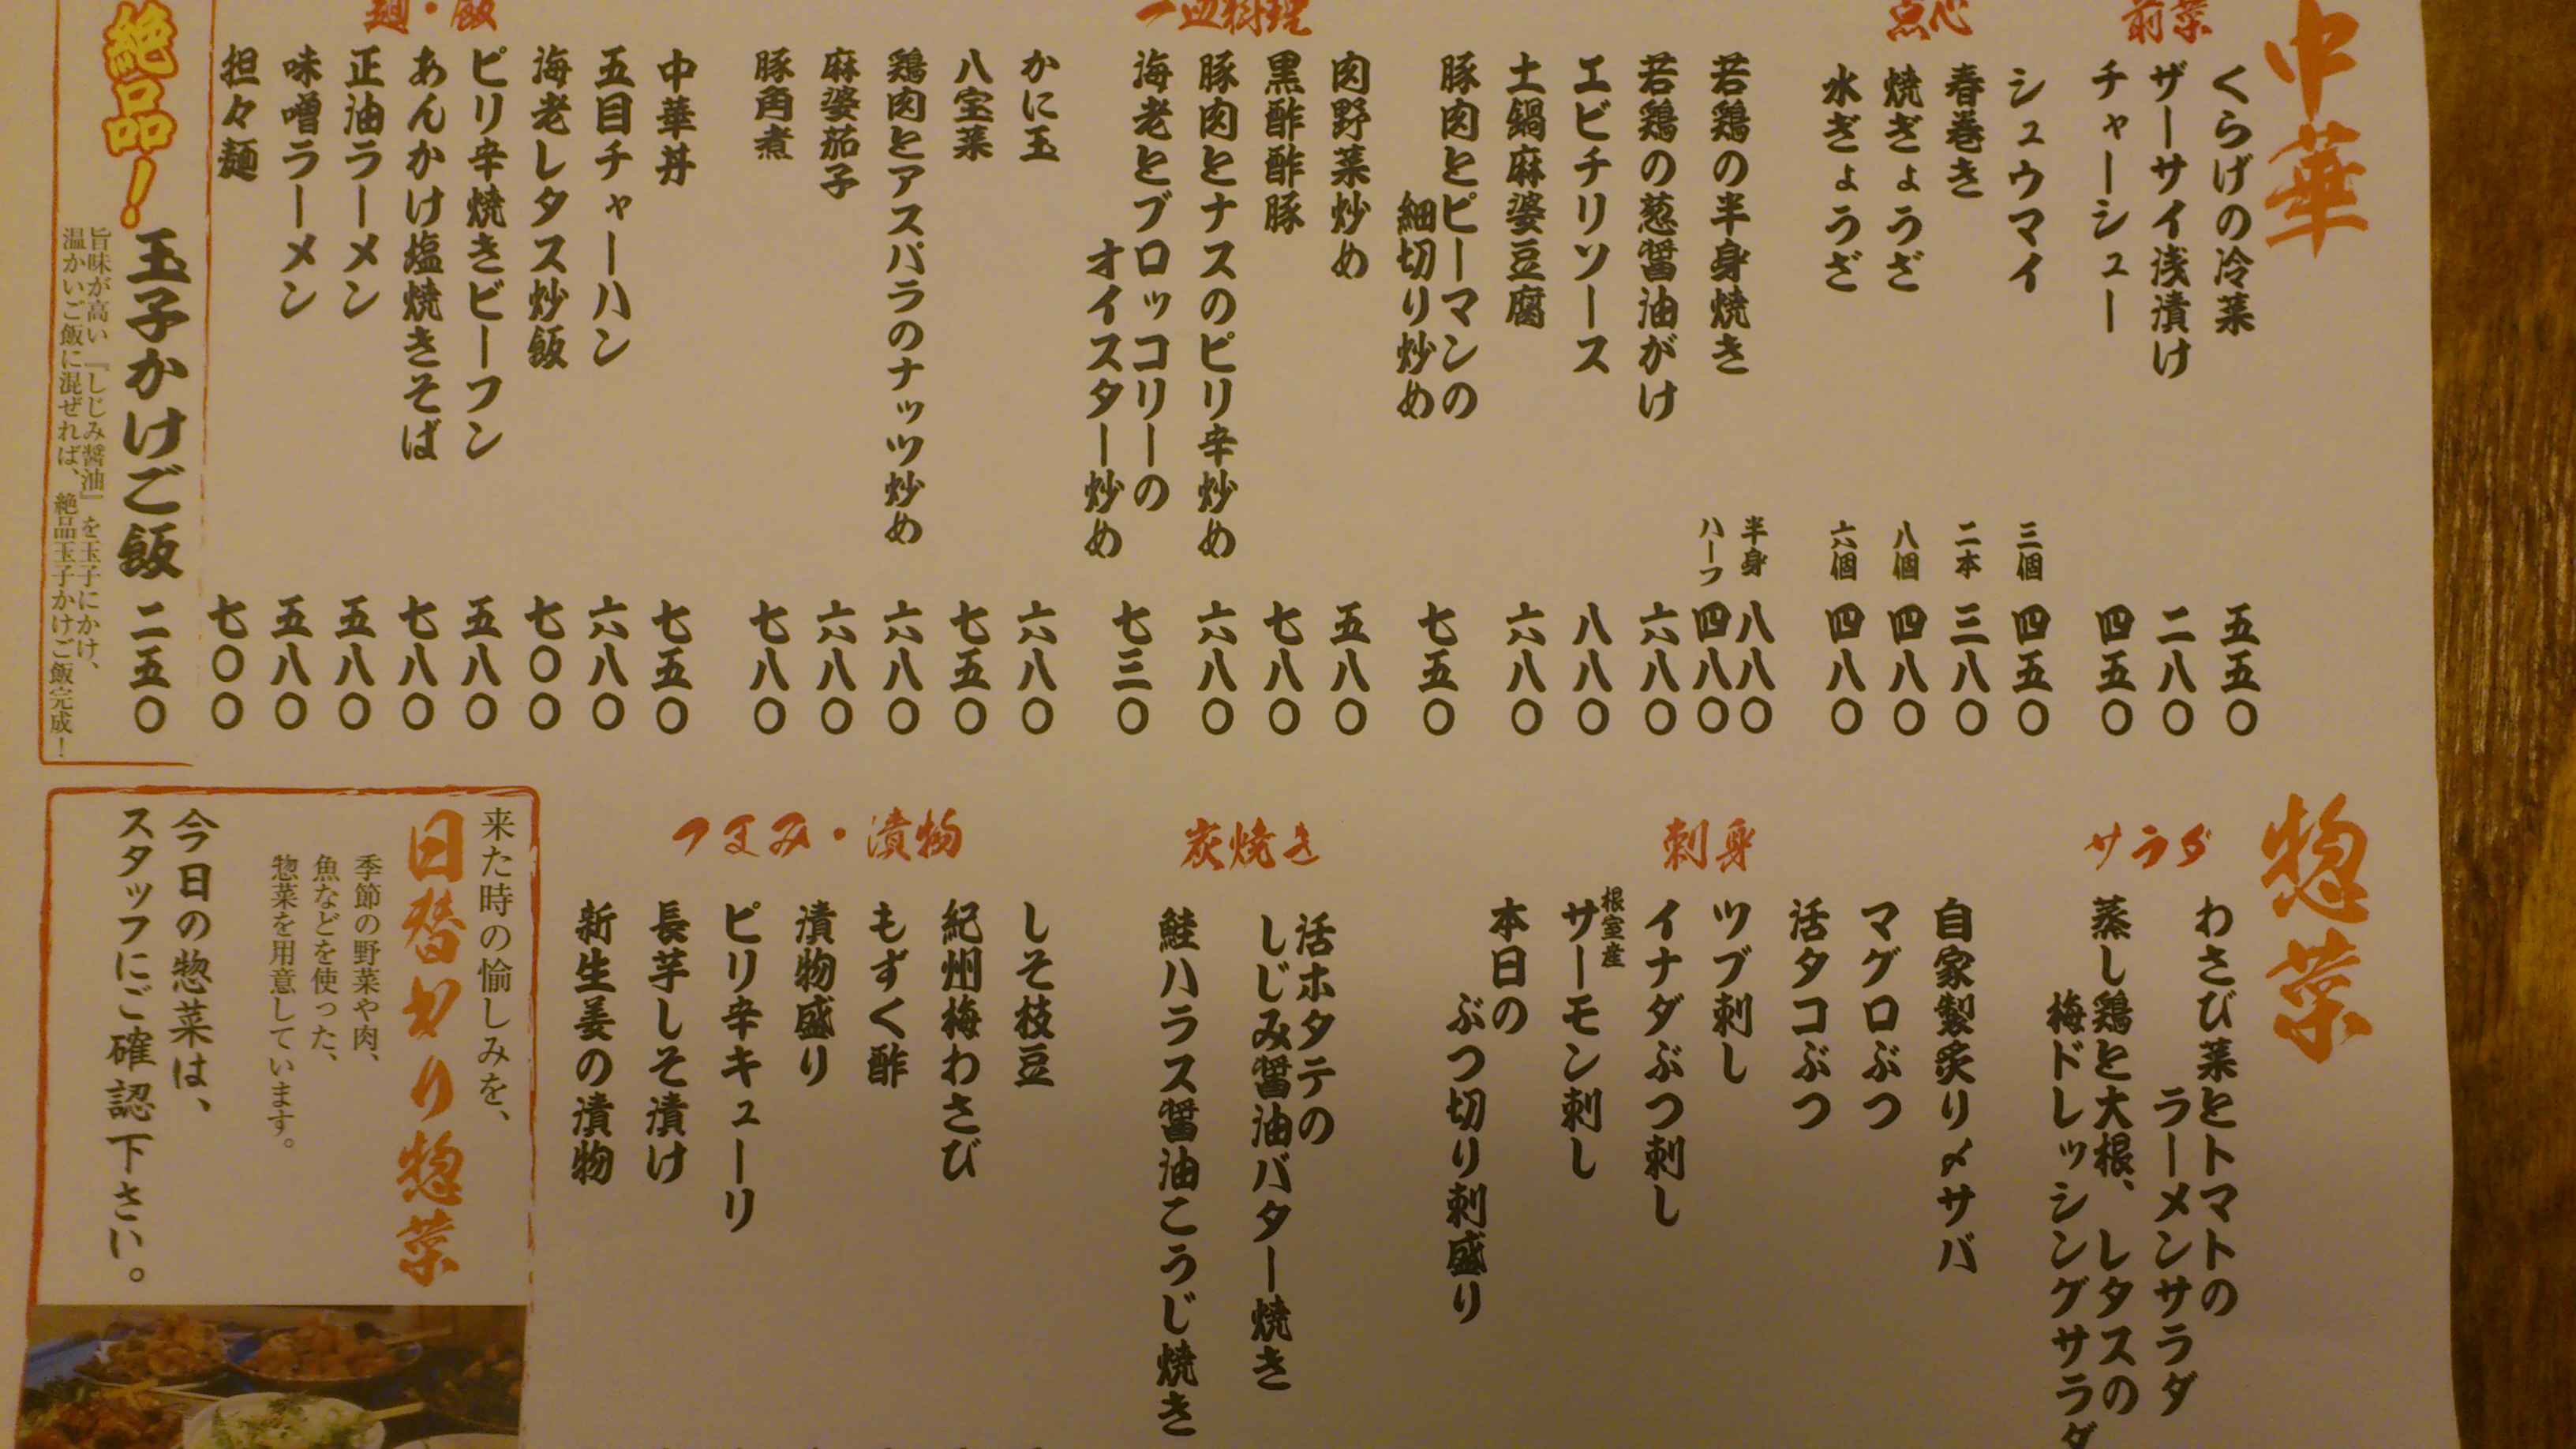 中華
前菜
くらげの冷菜 五五〇
ザーサイ浅漬け 二八〇
チャーシュー 四五〇
点心
シュウマイ 三個 四五〇
春巻き 二本 三八〇
焼ぎょうざ 八個 四八〇
水ぎょうざ 六個 四八〇
一皿料理
若鶏の半身焼き 半身 八八〇
ハーフ 四八〇
若鶏の葱醤油がけ 六八〇
エビチリソース 八八〇
土鍋麻婆豆腐 六八〇
豚肉とピーマンの
細切り炒め 七五〇
肉野菜炒め 五八〇
黒酢酢豚 七八〇
豚肉とナスのピリ辛炒め 六八〇
海老とブロッコリーの
オイスター炒め 七三〇
かに玉 六八〇
八宝菜 七五〇
鶏肉とアスパラのナッツ炒め 六八〇
麻婆茄子 六八〇
豚角煮 七八〇
麺・飯
中華丼 七五〇
五目チャーハン 六八〇
海老レタス炒飯 七〇〇
ピリ辛焼きビーフン 五八〇
あんかけ塩焼きそば 七八〇
正油ラーメン 五八〇
味噌ラーメン 五八〇
担々麺 七〇〇
絶品!
玉子かけご飯 二五〇
旨味が高い『しじみ醤油』を玉子にかけ、
温かいご飯に混ぜれば、絶品玉子かけご飯完成!
惣菜
サラダ
わさび菜とトマトの
ラーメンサラダ
蒸し鶏と大根、レタスの
梅ドレッシングサラダ
刺身
自家製炙り〆サバ
マグロぶつ
活タコぶつ
ツブ刺し
イナダぶつ刺し
根室産
サーモン刺し
本日の
ぶつ切り刺盛り
炭焼き
活ホタテの
しじみ醤油バター焼き
鮭ハラス醤油こうじ焼き
つまみ・漬物
しそ枝豆
紀州梅わさび
もずく酢
漬物盛り
ピリ辛キューリ
長芋しそ漬け
新生姜の漬物
来た時の愉しみを、
日替わり惣菜
季節の野菜や肉、
魚などを使った、
惣菜を用意しています。
今日の惣菜は、
スタッフにご確認下さい。